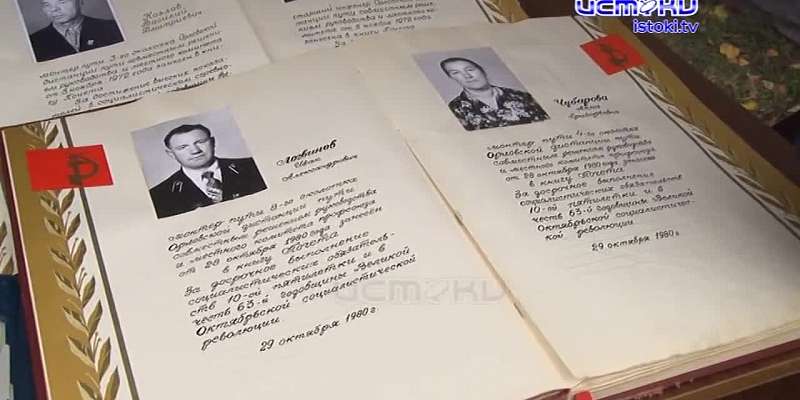 истоки
istoki.tv
Козлов
Василий
Дмитриевич
монтер пути 3-го околотка Орловской
от 5 ноября 1979 года занесен в кни-
гу Почета
За достижение высоких показа-
старший монтер Орловской дис-
танции пути совместным реше-
занесена в книгу Почета
За
Логвинов
Иван
Александрович
монтер пути 8-го околотка
Орловской дистанции пути
совместным решением руководства
и местного комитета профсоюза
от 28 октября 1980 года занесён
в книгу Почета
За досрочное выполнение
социалистических обязатель-
ств 10-ой пятилетки и в
честь 63-й годовщины Великой
Октябрьской социалистической
революции
29 октября 1980 г.
Чубарова
Анна
Григорьевна
монтер пути 4-го околотка
Орловской дистанции пути
совместным решением руководства
и местного комитета профсоюза
от 28 октября 1980 года занесена
в книгу Почета
За досрочное выполнение
социалистических обязательств
10-ой пятилетки и в
честь 63-й годовщины Великой
Октябрьской социалистичес-
кой революции
29 октября 1980 г.
истоки